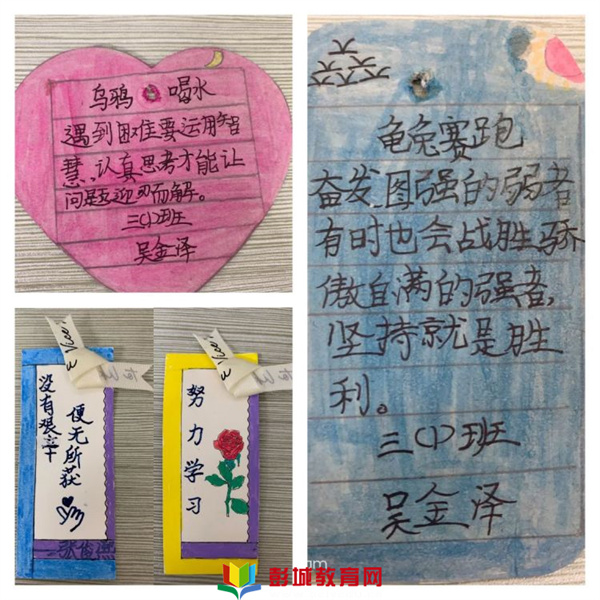 乌鸦喝水
遇到困难要运用智
慧,认真思考才能让
问题迎刃而解。
三(1)班
吴金泽
龟兔赛跑
奋发图强的弱者
有时也会战胜骄
傲自满的强者,
坚持就是胜
利。
三(1)班
吴金泽
没有艰辛
便无所获
努力学习
彭城教育网